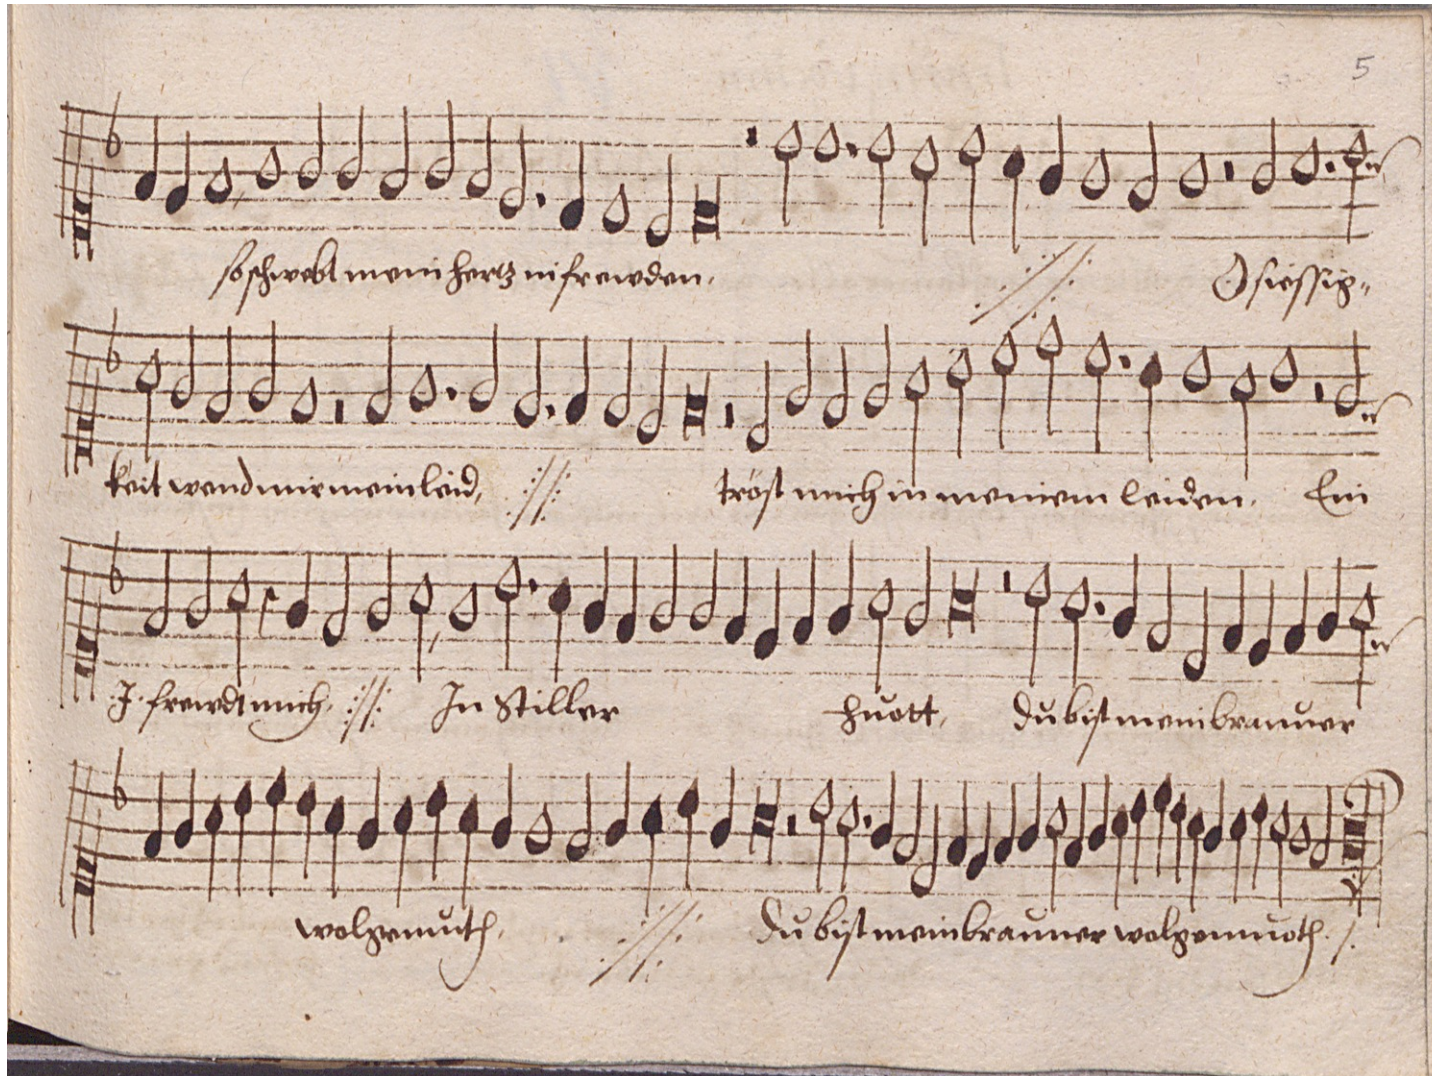 5
so schwebt mein hertz in frewden.
O siessig„
keit wend mir mein leid,
tröst mich in meinem leiden. Ein
.J. frewdt mich, In Stiller huott, du bist mein brauner
wolgemuth, du bist mein brauner wolgemuoth.